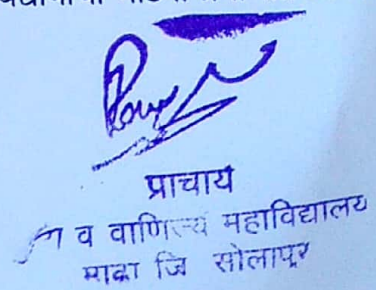 प्राचार्य
व वाणिज्य महाविद्यालय
माढा जि सोलापूर